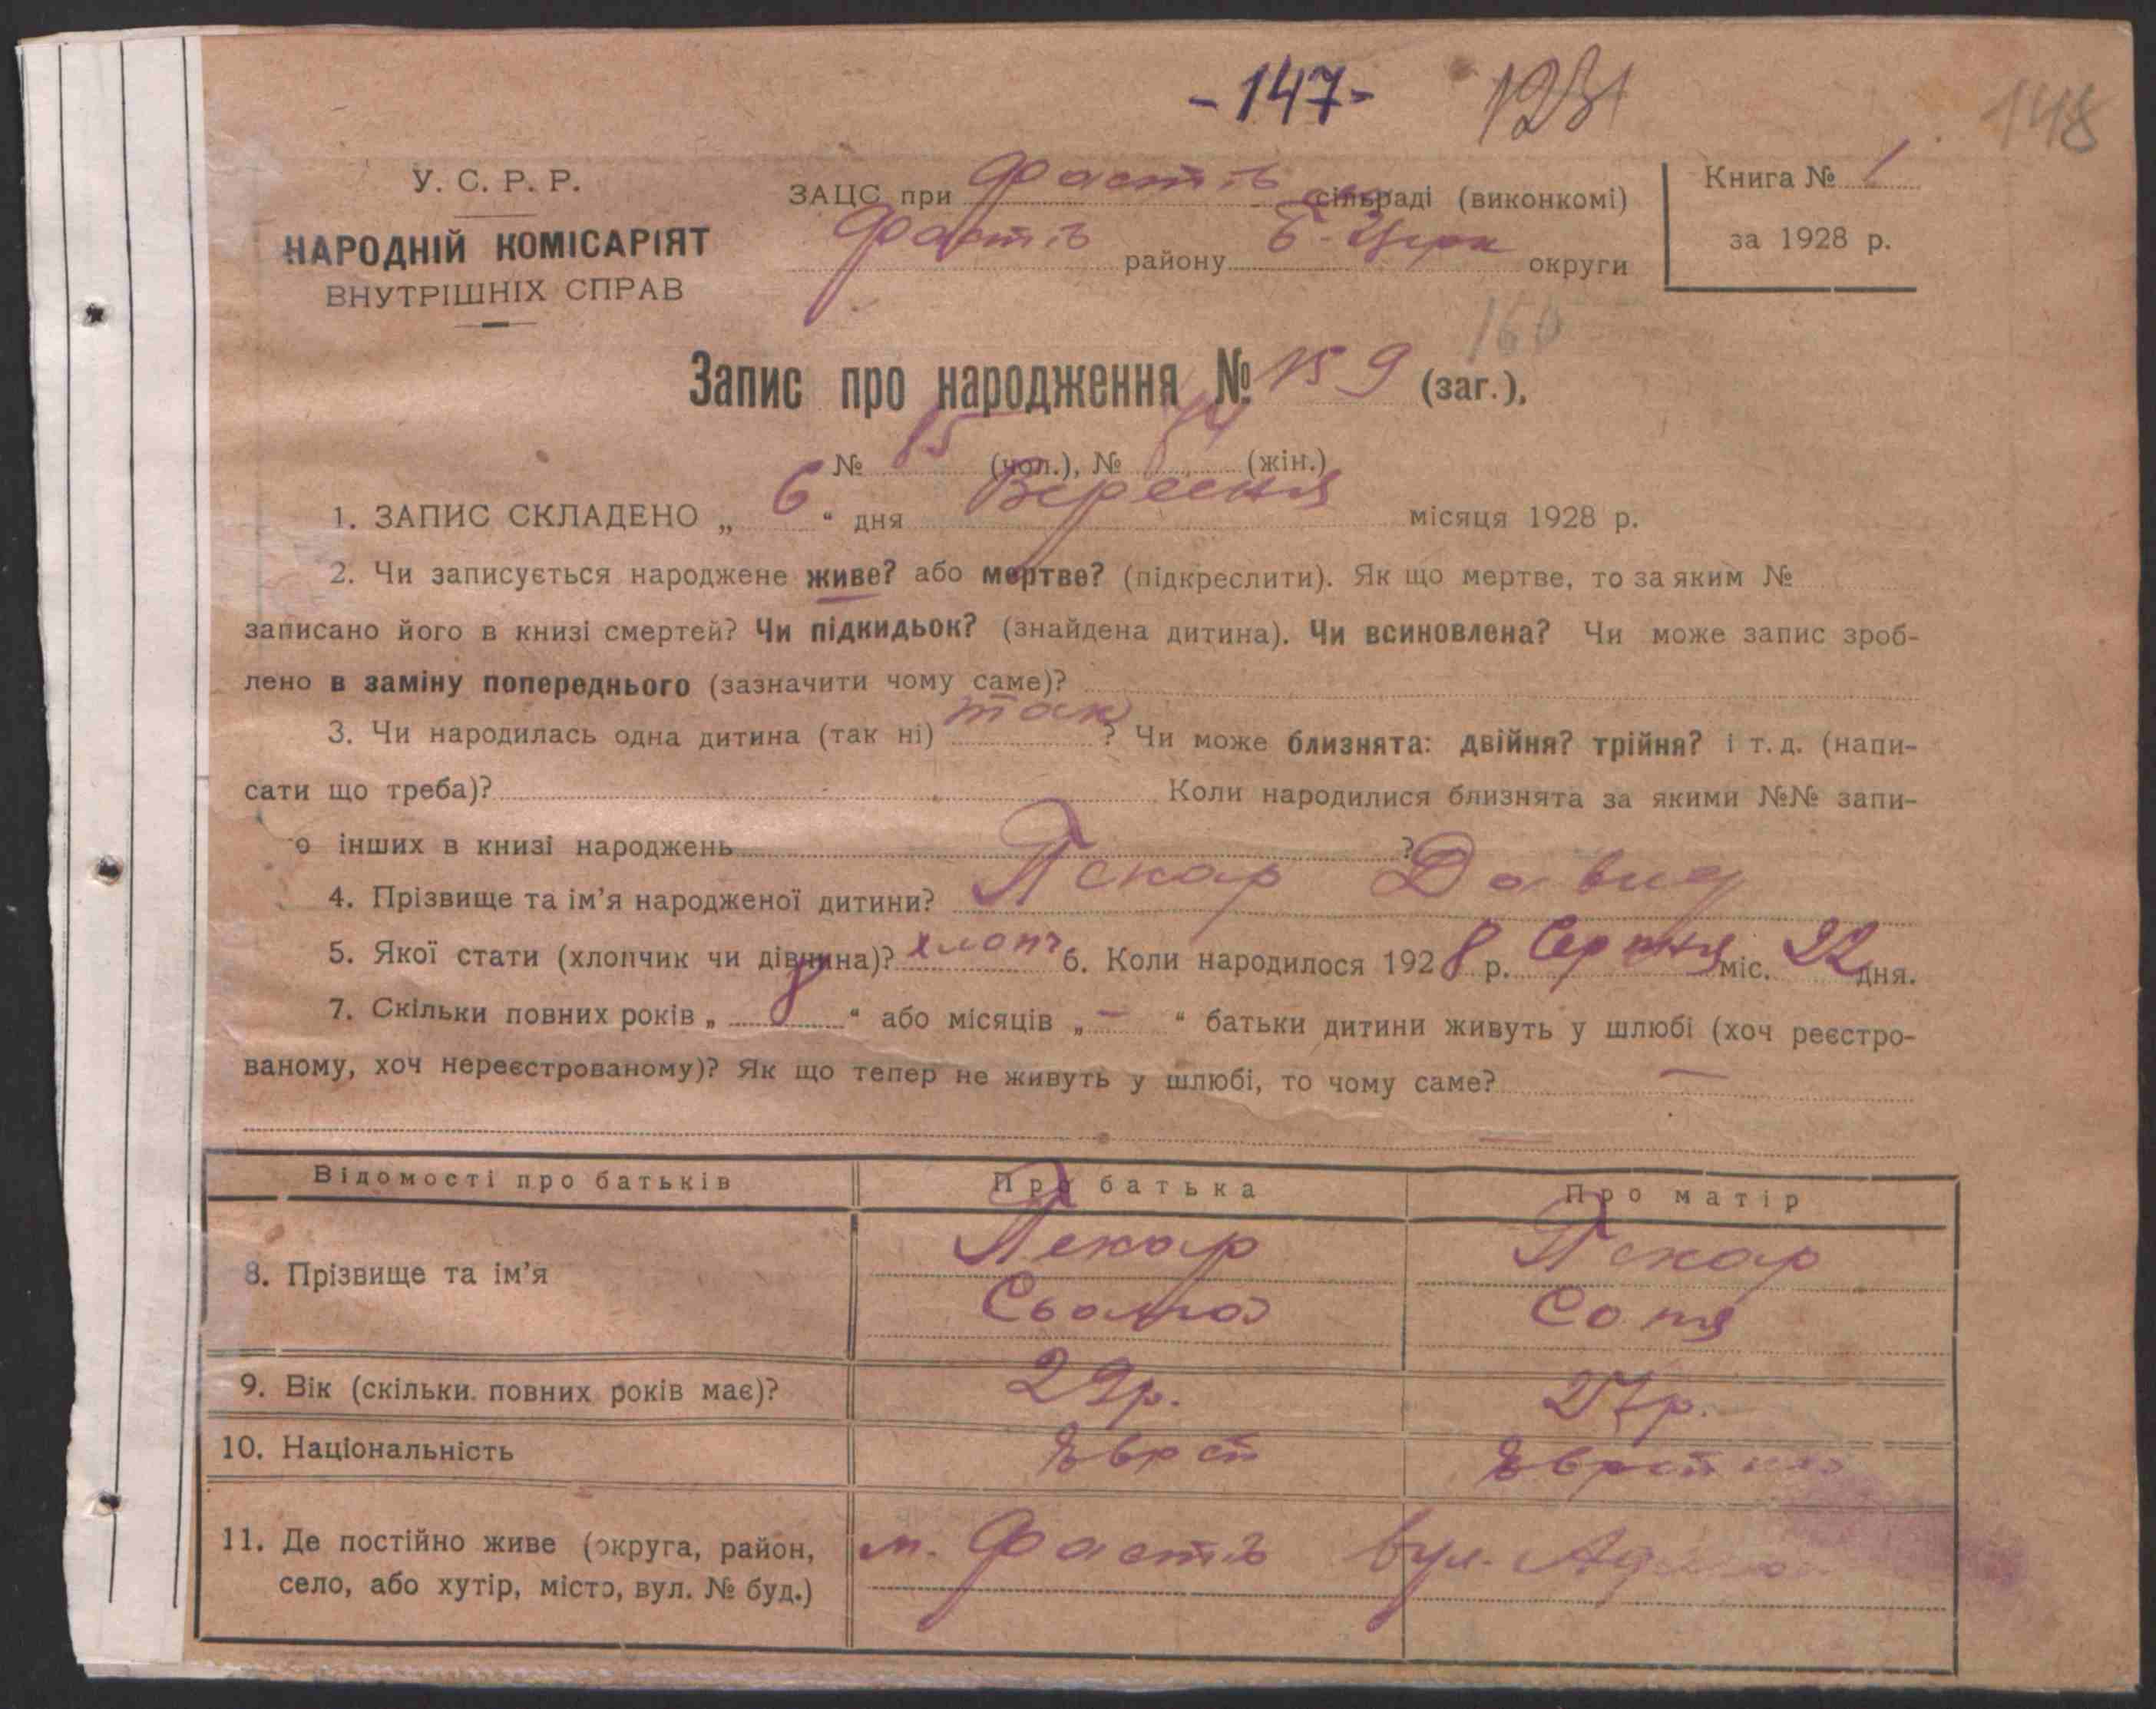 -147- 1231 148
У. С. Р. Р.
НАРОДНІЙ КОМІСАРІЯТ
ВНУТРІШНІХ СПРАВ
ЗАЦС при Фастів сільраді (виконкомі)
Фастів району Б-Церк округи
Книга № 1
за 1928 р.
160
Запис про народження № 159 (заг.),
№ 85 (чол.), № 74 (жін.)
1. ЗАПИС СКЛАДЕНО „ 6 “ дня Вересня місяця 1928 р.
2. Чи записується народжене живе? або мертве? (підкреслити). Як що мертве, то за яким №
записано його в книзі смертей? Чи підкидьок? (знайдена дитина). Чи всиновлена? Чи може запис зроб-
лено в заміну попереднього (зазначити чому саме)?
3. Чи народилась одна дитина (так ні) так ? Чи може близнята: двійня? трійня? і т. д. (напи-
сати що треба)? Коли народилися близнята за якими №№ запи-
о інших в книзі народжень ?
4. Прізвище та ім’я народженої дитини? Пекар Давид
5. Якої стати (хлопчик чи дівчина)? хлопч 6. Коли народилося 1928 р. Серпня міс. 22 дня.
7. Скільки повних років „ 8 “ або місяців „ — “ батьки дитини живуть у шлюбі (хоч реєстро-
ваному, хоч нереєстрованому)? Як що тепер не живуть у шлюбі, то чому саме? —
Відомості про батьків Про батька Про матір
8. Прізвище та ім’я Пекар Пекар
Сьома Соня
9. Вік (скільки повних років має)? 29р. 27р.
10. Національність Єврей Єврейка
11. Де постійно живе (округа, район, м. Фастів вул.
село, або хутір, місто, вул. № буд.)